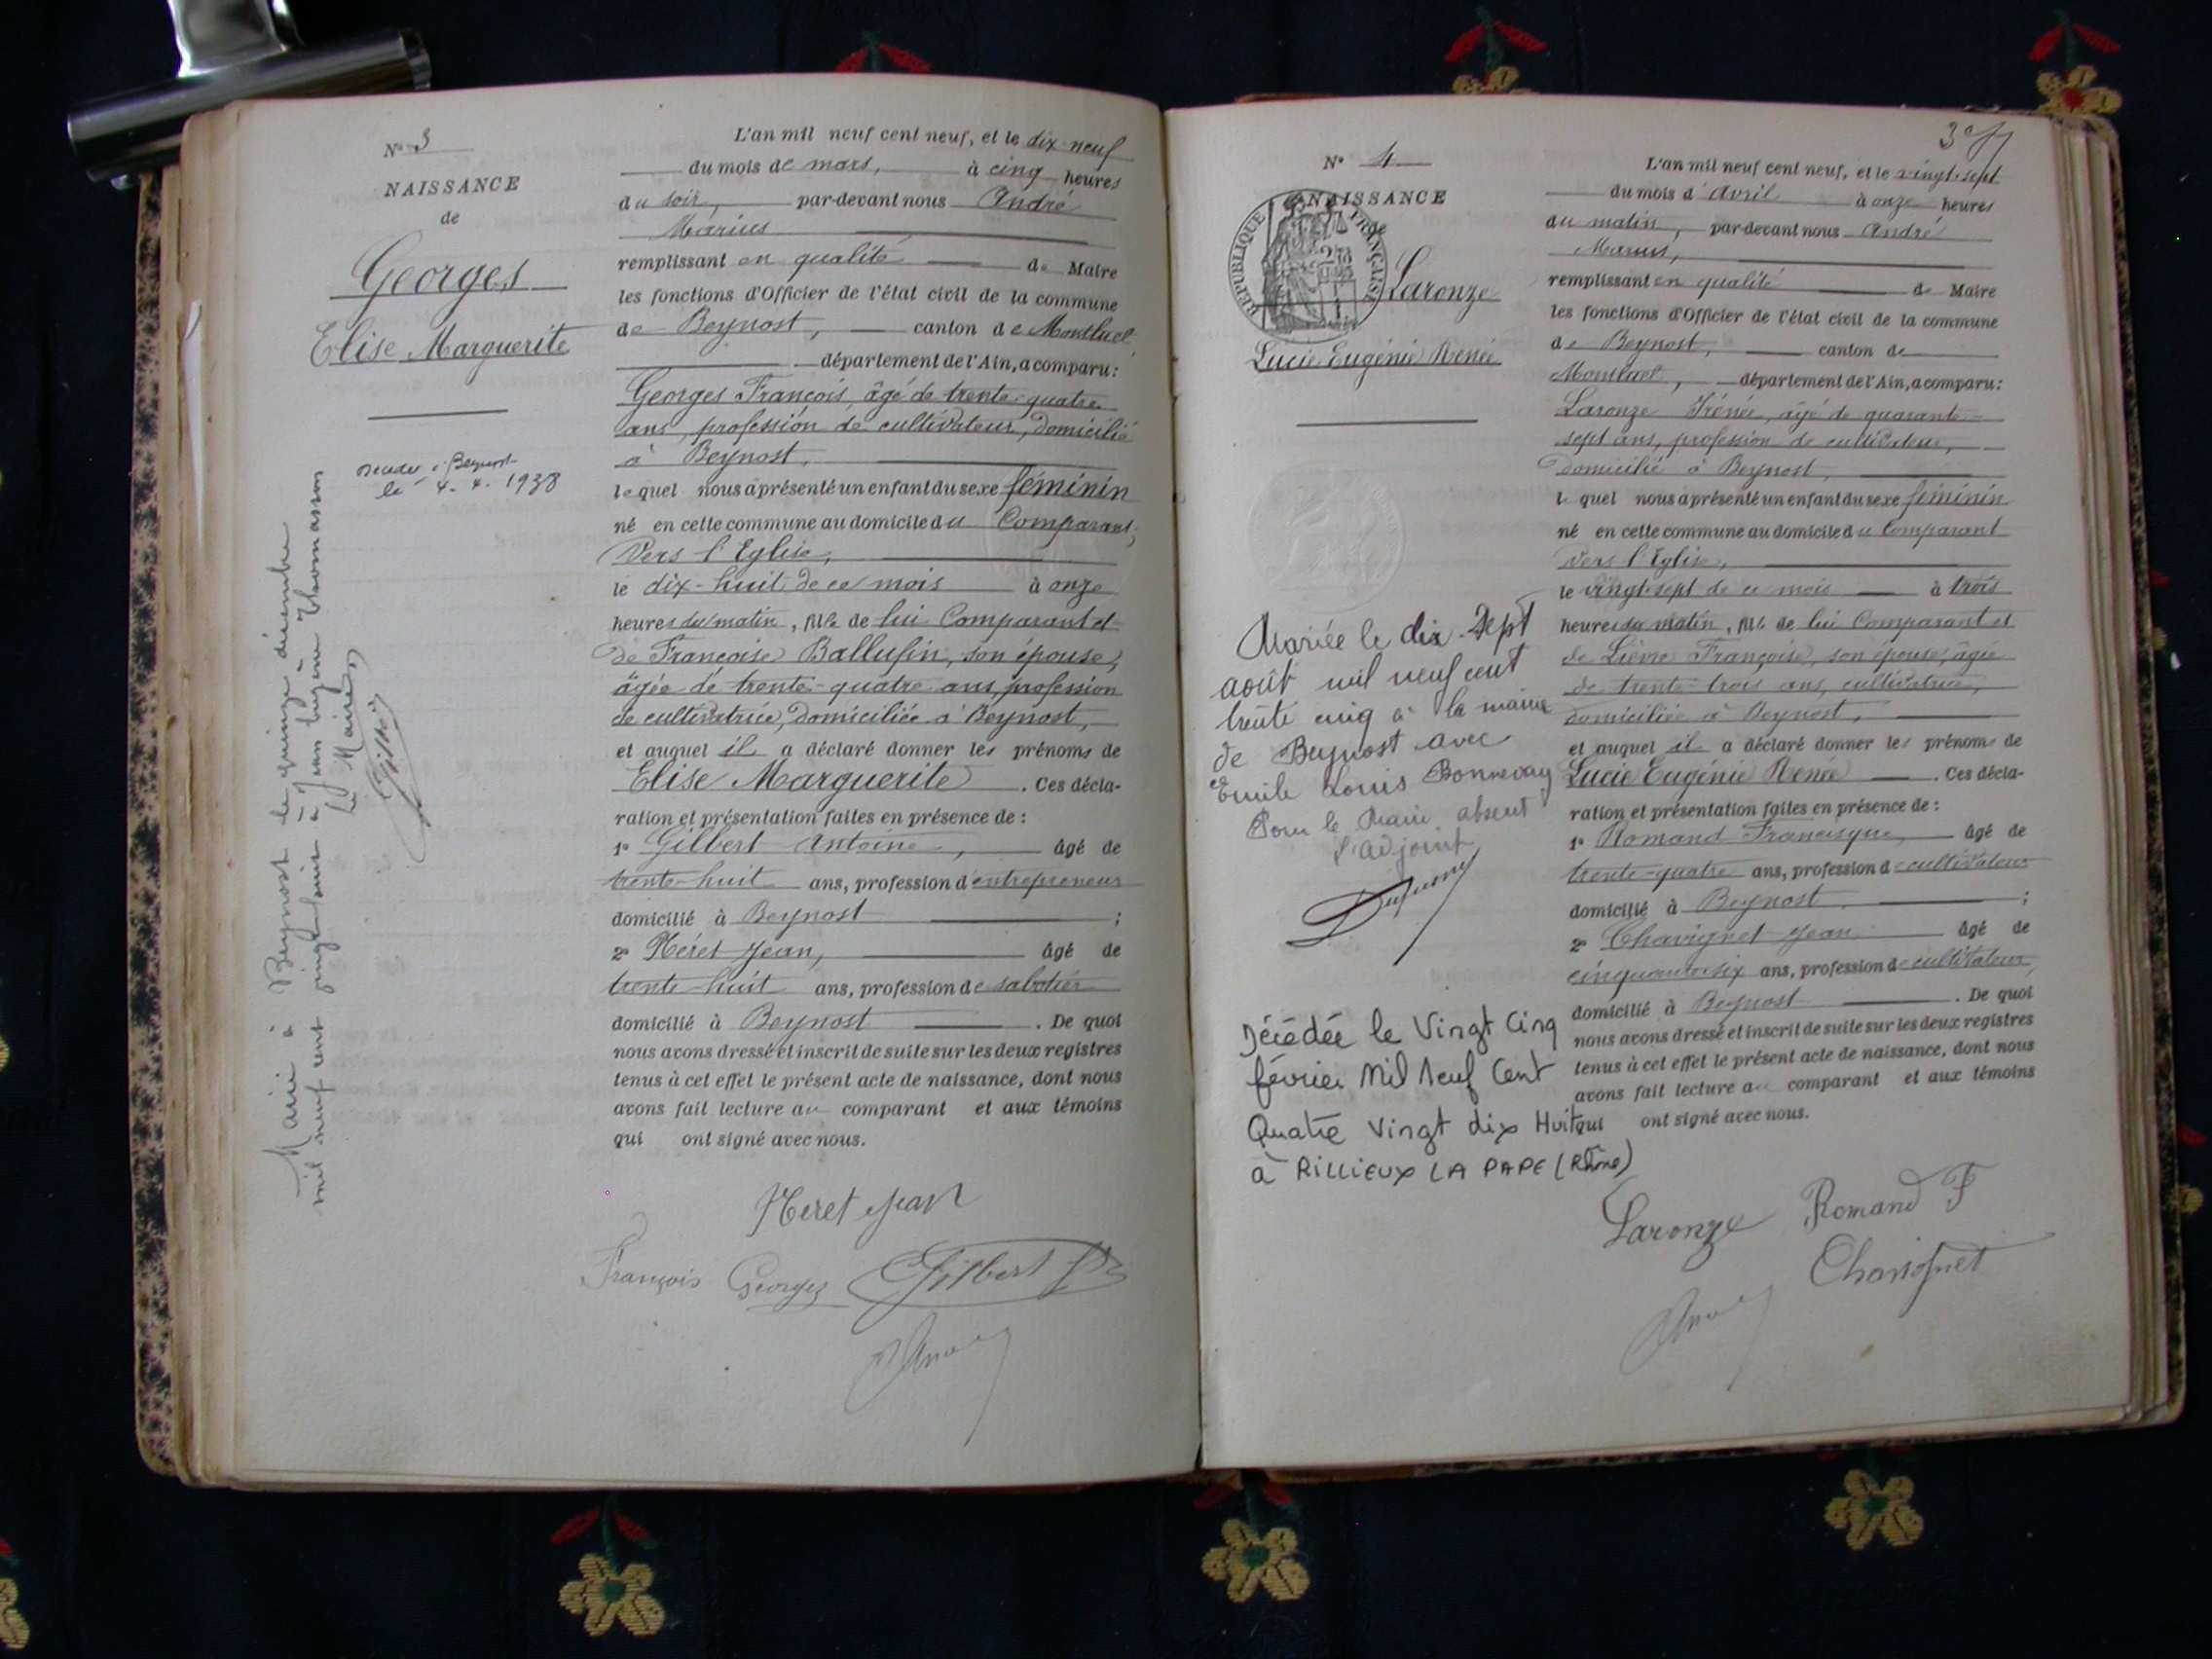 N° 3
NAISSANCE
de
Georges
Elise Marguerite
Décédée à Beynost
le 4. 4. 1938
Marié à Beynost le quinze décembre
mil neuf cent vingt huit à Jean Eugène Thomasson
Le Maire
L'an mil neuf cent neuf, et le dix-neuf
du mois de mars, à cinq heures
du soir, par-devant nous André
Marius
remplissant en qualité de Maire
les fonctions d'Officier de l'état civil de la commune
de Beynost, canton de Montluel
département de l'Ain, a comparu :
Georges François, âgé de trente-quatre
ans, profession de cultivateur, domicilié
à Beynost,
lequel nous a présenté un enfant du sexe féminin
né en cette commune au domicile du Comparant,
Vers l'Eglise,
le dix-huit de ce mois à onze
heures du matin, fille de lui Comparant et
de Françoise Ballufin, son épouse,
âgée de trente-quatre ans, profession
de cultivatrice, domiciliée à Beynost,
et auquel il a déclaré donner les prénoms de
Elise Marguerite. Ces décla-
ration et présentation faites en présence de :
1° Gilbert Antoine, âgé de
trente-huit ans, profession d'entrepreneur
domicilié à Beynost ;
2° Néret Jean, âgé de
trente-huit ans, profession de sabotier
domicilié à Beynost. De quoi
nous avons dressé et inscrit de suite sur les deux registres
tenus à cet effet le présent acte de naissance, dont nous
avons fait lecture au comparant et aux témoins
qui ont signé avec nous.
Neret Jean
François Georges Gilbert
3e f
N° 4
NAISSANCE
de
REPUBLIQUE FRANÇAISE
Laronze
Lucie Eugénie Renée
Mariée le dix-sept
août mil neuf cent
trente cinq à la mairie
de Beynost avec
Emile Louis Bonnevay
Pour le Maire absent
L'adjoint
Décédée le Vingt Cinq
février Mil Neuf Cent
Quatre Vingt dix Huit
à RILLIEUX LA PAPE (Rhône)
L'an mil neuf cent neuf, et le vingt-sept
du mois d'avril à onze heures
du matin, par-devant nous André
Marius,
remplissant en qualité de Maire
les fonctions d'Officier de l'état civil de la commune
de Beynost, canton de
Montluel, département de l'Ain, a comparu :
Laronze Irénée, âgé de quarante-
sept ans, profession de cultivateur,
domicilié à Beynost,
lequel nous a présenté un enfant du sexe féminin
né en cette commune au domicile du Comparant
Vers l'Eglise,
le vingt-sept de ce mois à trois
heures du matin, fille de lui Comparant et
de Lièvre Françoise, son épouse, âgée
de trente-trois ans, cultivatrice,
domiciliée à Beynost,
et auquel il a déclaré donner les prénoms de
Lucie Eugénie Renée. Ces décla-
ration et présentation faites en présence de :
1° Romand Francisque, âgé de
trente-quatre ans, profession de cultivateur
domicilié à Beynost ;
2° Chavignet Jean âgé de
cinquante-six ans, profession de cultivateur,
domicilié à Beynost. De quoi
nous avons dressé et inscrit de suite sur les deux registres
tenus à cet effet le présent acte de naissance, dont nous
avons fait lecture au comparant et aux témoins
qui ont signé avec nous.
Laronze Romand F
Chavignet